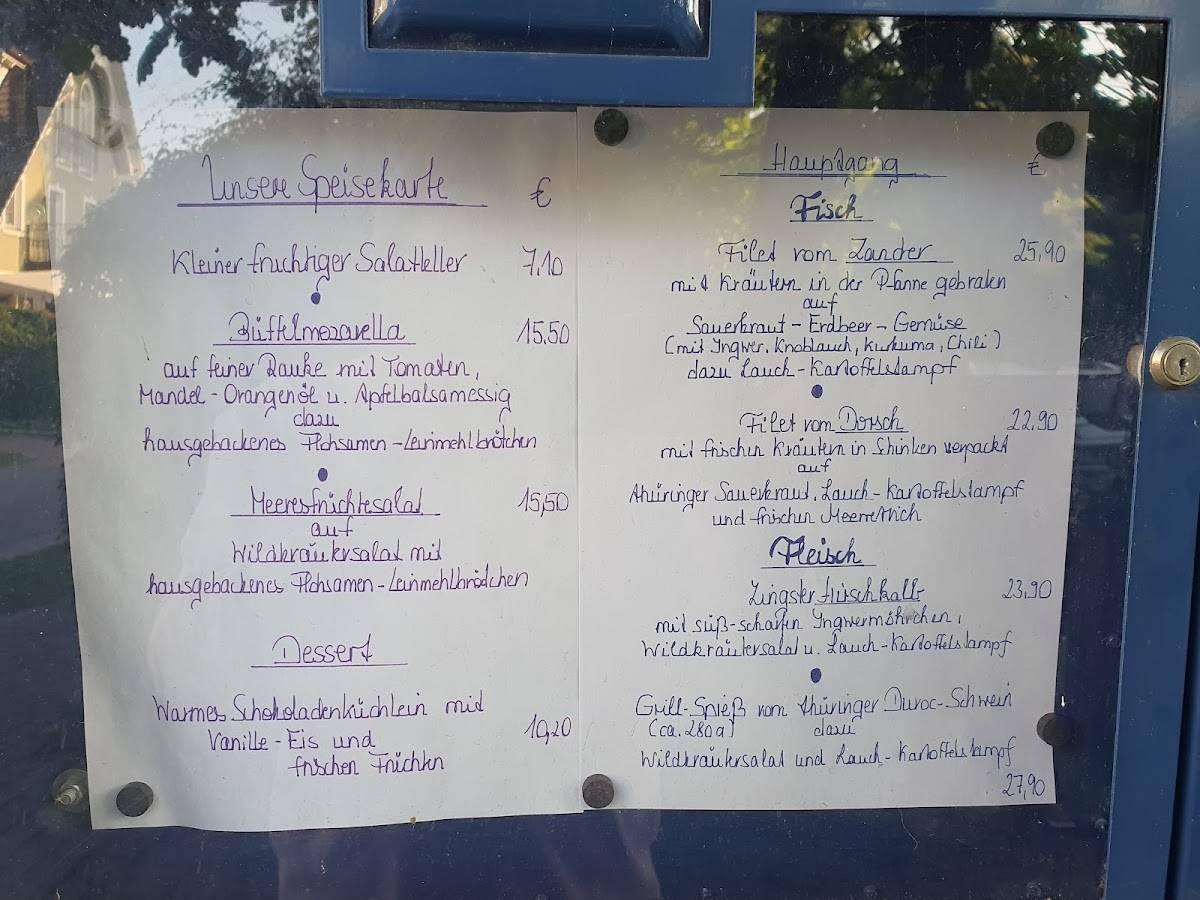 Unsere Speisekarte €
Kleiner fruchtiger Salatteller 7,10
Büffelmozarella 15,50
auf feiner Rauke mit Tomaten,
Mandel-Orangenöl u. Apfelbalsamessig
dazu
hausgebackenes Flohsamen-Leinmehlbrötchen
Meeresfrüchtesalat 15,50
auf
Wildkräutersalat mit
hausgebackenes Flohsamen-Leinmehlbrödchen
Dessert
Warmes Schokoladenküchlein mit
Vanille-Eis und 10,20
frischen Früchten
Hauptgang €
Fisch
Filet vom Zander 25,90
mit Kräutern in der Pfanne gebraten
auf
Sauerkraut-Erdbeer-Gemüse
(mit Ingwer, Knoblauch, Kurkuma, Chili)
dazu Lauch-Kartoffelstampf
Filet vom Dorsch 22,90
mit frischen Kräutern in Schinken verpackt
auf
Thüringer Sauerkraut, Lauch-Kartoffelstampf
und frischen Meerrettich
Fleisch
Zingster Hirschkalb 23,90
mit süß-scharfen Ingwermöhrchen,
Wildkräutersalat u. Lauch-Kartoffelstampf
Grill-Spieß vom Thüringer Duroc-Schwein
(ca. 280g) dazu
Wildkräutersalat und Lauch-Kartoffelstampf
27,90